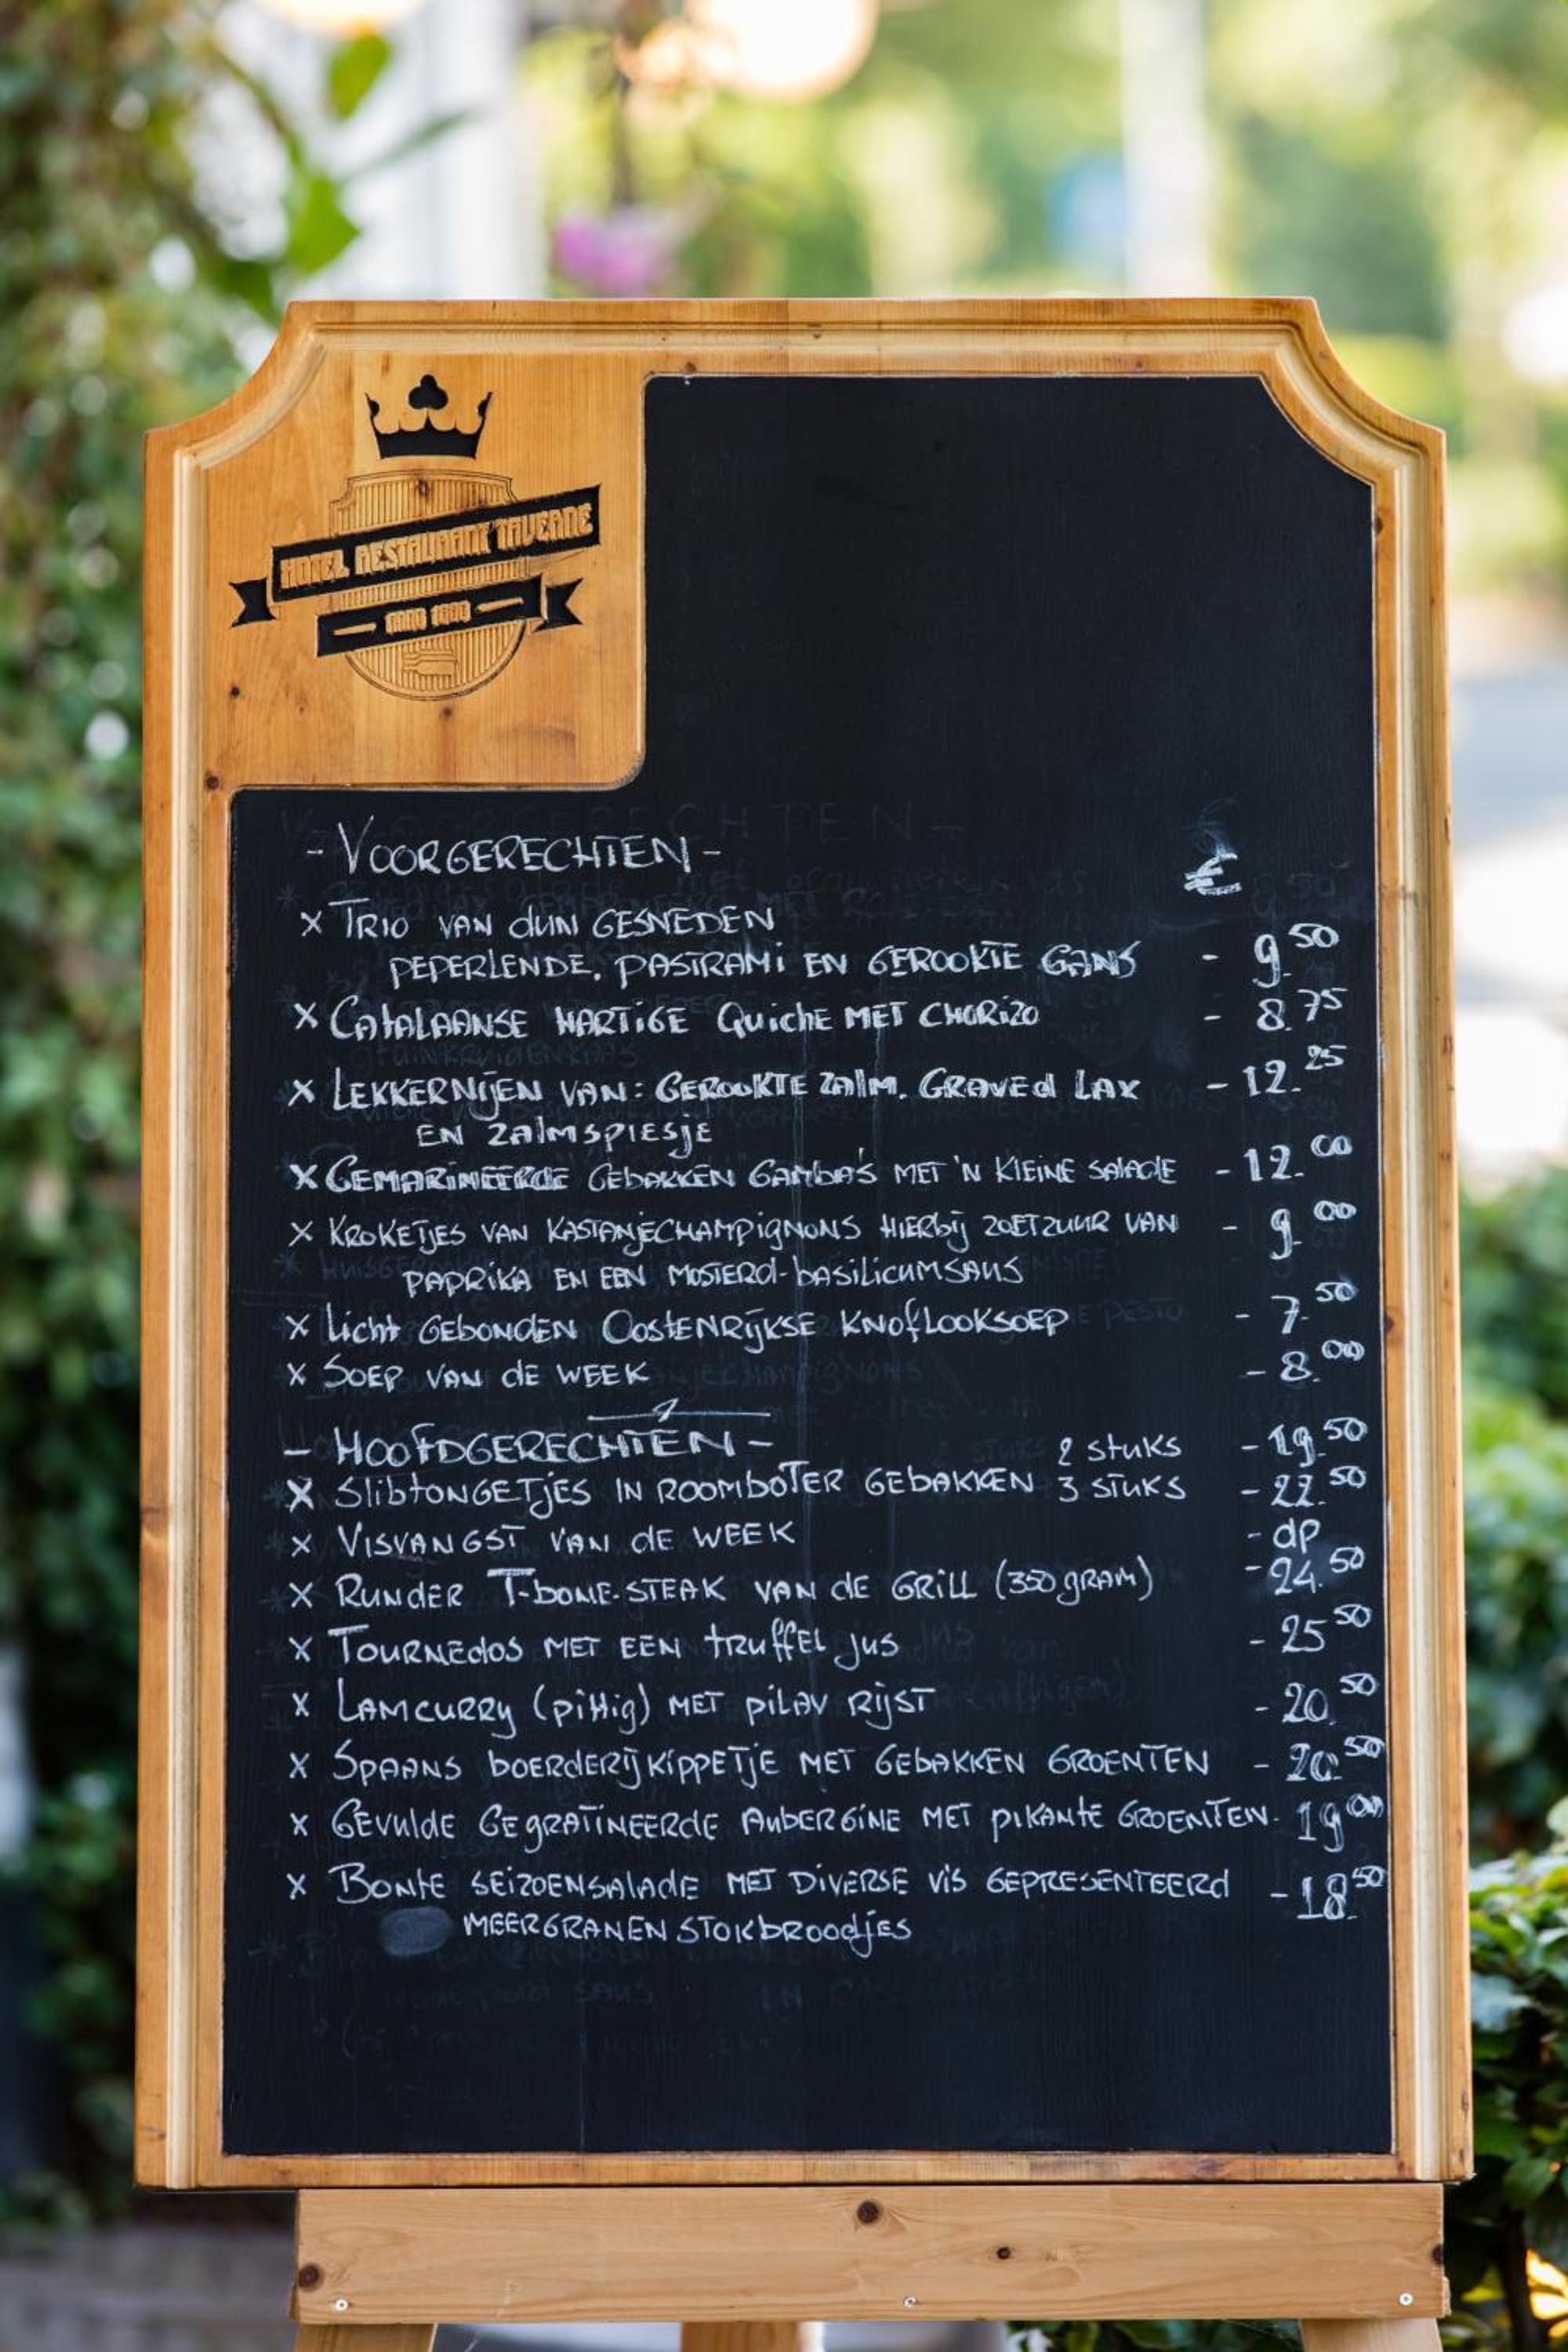 HOTEL RESTAURANT TAVERNE
- VOORGERECHTEN -
€
X TRIO VAN dUN GESNEDEN
PEPERLENDE, PASTRAMi EN GEROOKTE GANS - 9.50
X CATALAANSE HARTIGE QuichE MET CHORIZO - 8.75
X LEKKERNIJEN VAN: GEROOKTE ZAlM, GRAVEd LAX - 12.25
EN ZAlMSPIESjE
X GEMARINEERdE GEbAKKEN GAMbA'S MET 'N KlEINE SALADE - 12.00
X KROKETJES VAN KASTANjECHAMPigNONS HIERbij ZOETZUUR VAN - 9.00
PAPRIKA EN EEN MOSTERd-bASiliCUMSAUS
X Licht GEBONDEN OOSTENRIJKSE KNOfLOOKSOEP - 7.50
X SOEP VAN dE WEEK - 8.00
- HOOfDGERECHTEN - 2 stuks - 19.50
X SlibtONGETjES IN ROOMbOTER GEbAKKEN 3 STUKS - 22.50
X VISVANGST VAN dE WEEK - dp
X RUNdER T-bONE-STEAK VAN dE GRILL (350 gRAM) - 24.50
X TOURNEdOS MET EEN tRUffEL jUS - 25.50
X LAMCURRY (pittig) MET pilAV RijST - 20.50
X SPAANS bOERdERIJKIPPETjE MET GEbAKKEN GROENTEN - 20.50
X GEVUldE GEgRATINEERdE AUbERGINE MET pIKANtE GROENTEN - 19.00
X BONtE SEIZOENSAlAdE MET DIVERSE VIS GEPRESENTEERd - 18.50
MEERGRANEN STOKbROOdjES